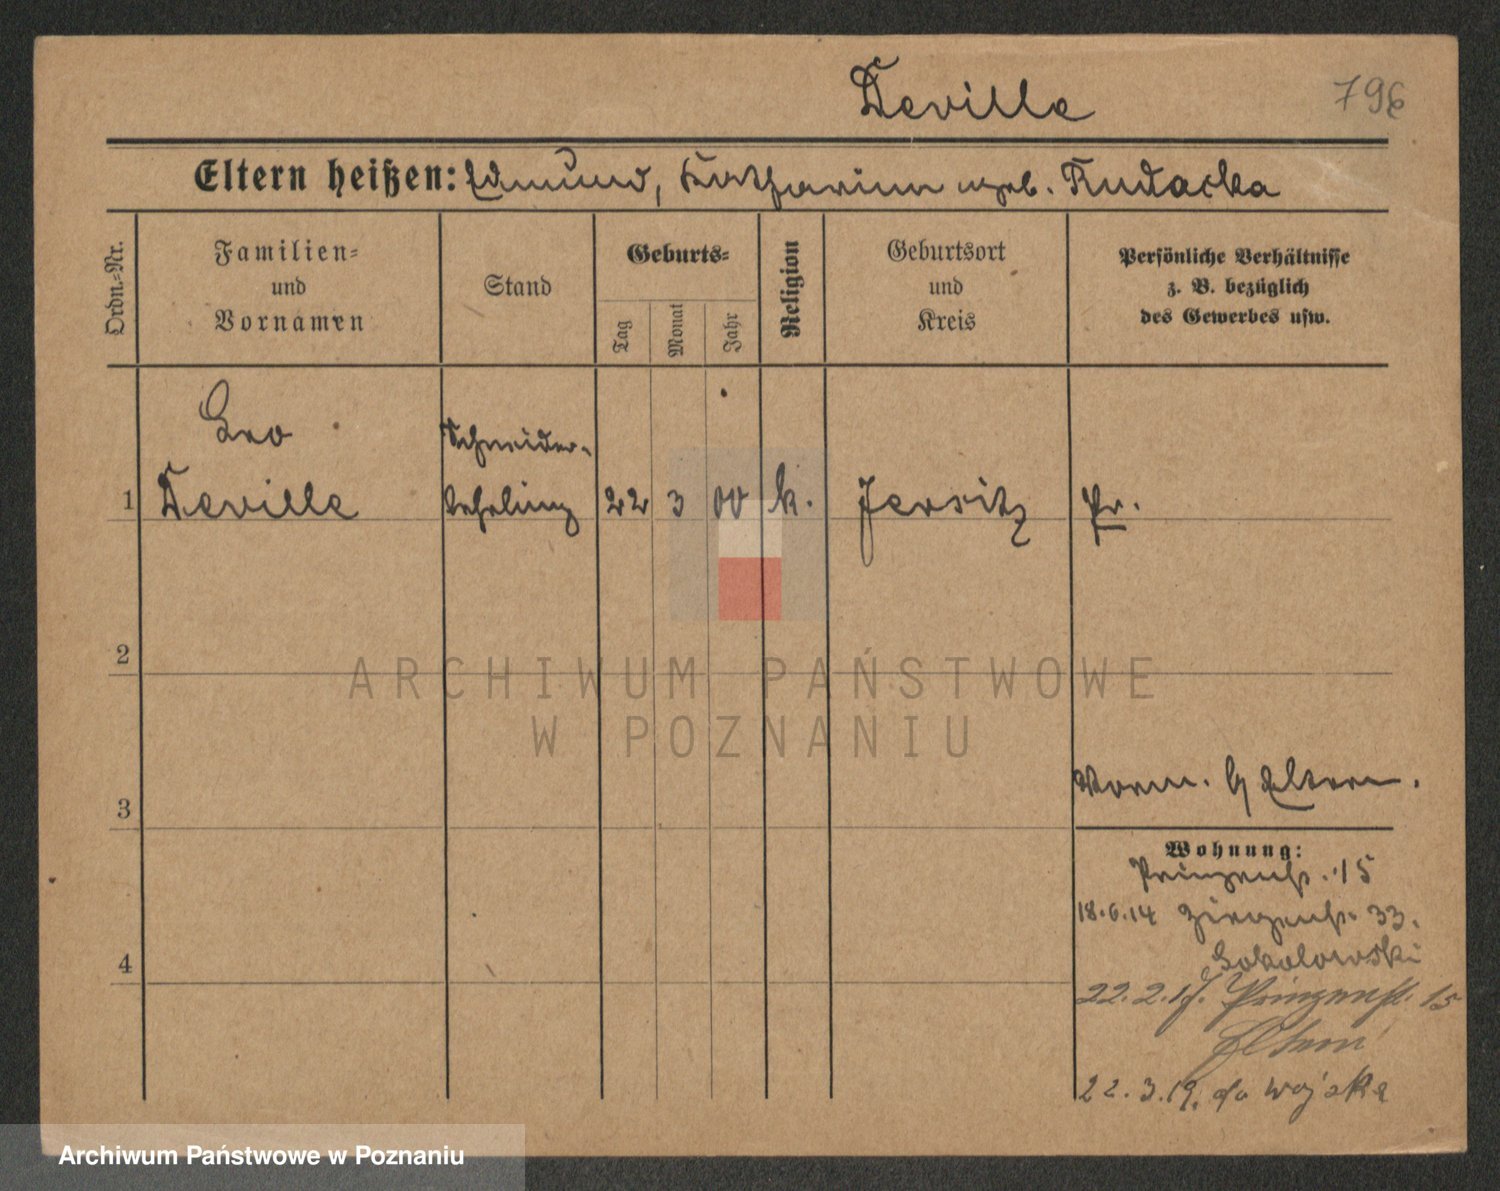 Deville
796
Eltern heißen: Edmund, Katharina geb. Rudacka
Ordn.=Nr.
Familien=
und
Vornamen
Stand
Geburts=
Tag
Monat
Jahr
Religion
Geburtsort
und
Kreis
Persönliche Verhältnisse
z. B. bezüglich
des Gewerbes usw.
Leo
Schneider-
1 Deville lehrling 22 3 00 k. Jersitz Pr.
2
ARCHIWUM PAŃSTWOWE
W POZNANIU
Eltern.
3
Wohnung:
Prinzenstr. 15
18.6.14 33.
Sokolowski
4
22.2.17. Prinzenstr. 15
Eltern
22.3.19. do wojska
Archiwum Państwowe w Poznaniu